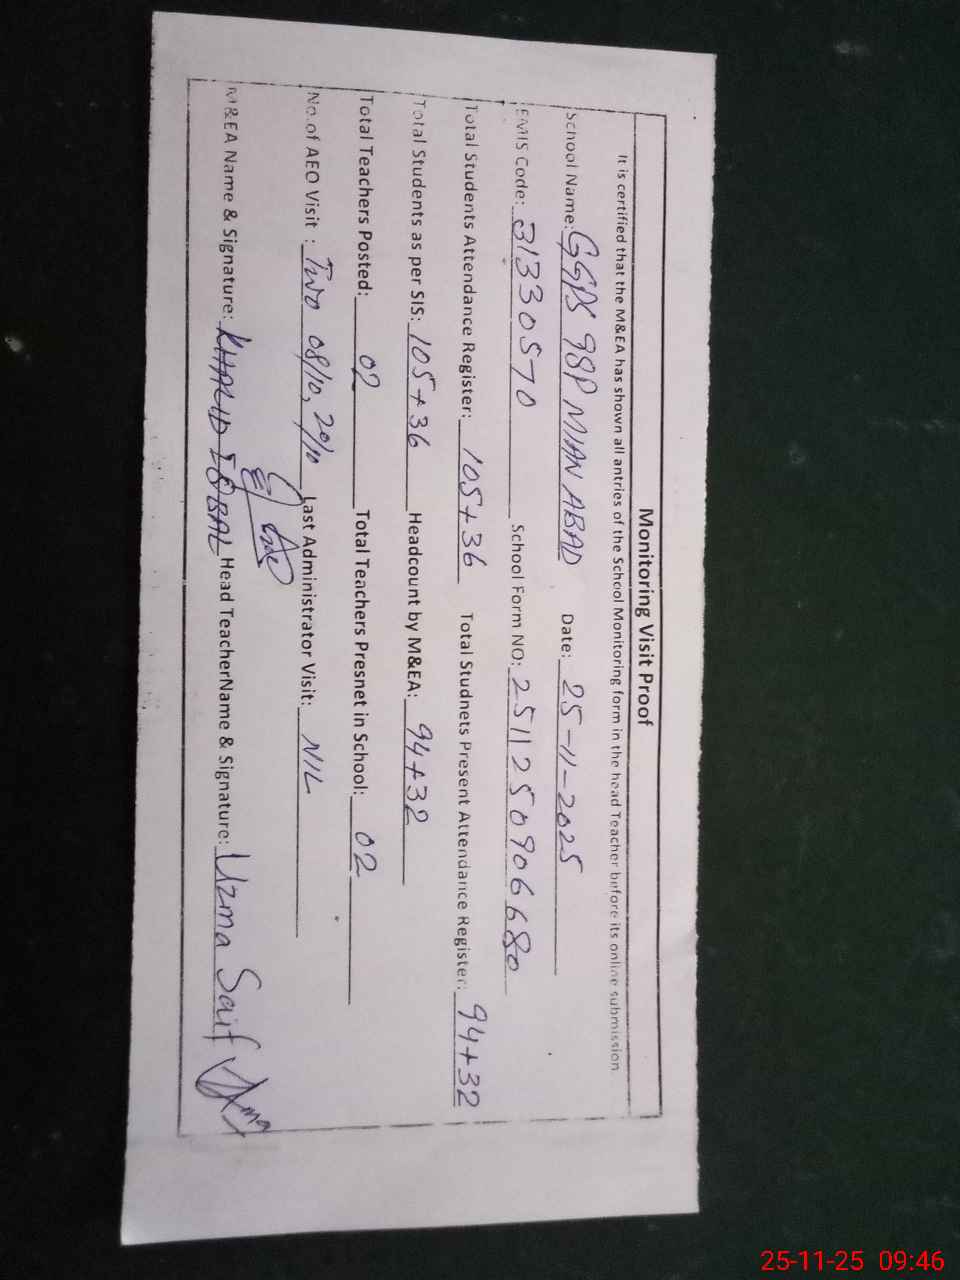 Monitoring Visit Proof
It is certified that the M&EA has shown all antries of the School Monitoring form in the head Teacher before its online submission
School Name: GGPS 98P MIAN ABAD Date: 25-11-2025
EMIS Code: 31330570 School Form NO: 2511250906680
Total Students Attendance Register: 105+36 Total Studnets Present Attendance Register: 94+32
Total Students as per SIS: 105+36 Headcount by M&EA: 94+32
Total Teachers Posted: 02 Total Teachers Presnet in School: 02
No.of AEO Visit : Two 08/10, 20/10 Last Administrator Visit: NIL
M&EA Name & Signature: KHALID IQBAL Head TeacherName & Signature: Uzma Saif
25-11-25 09:46